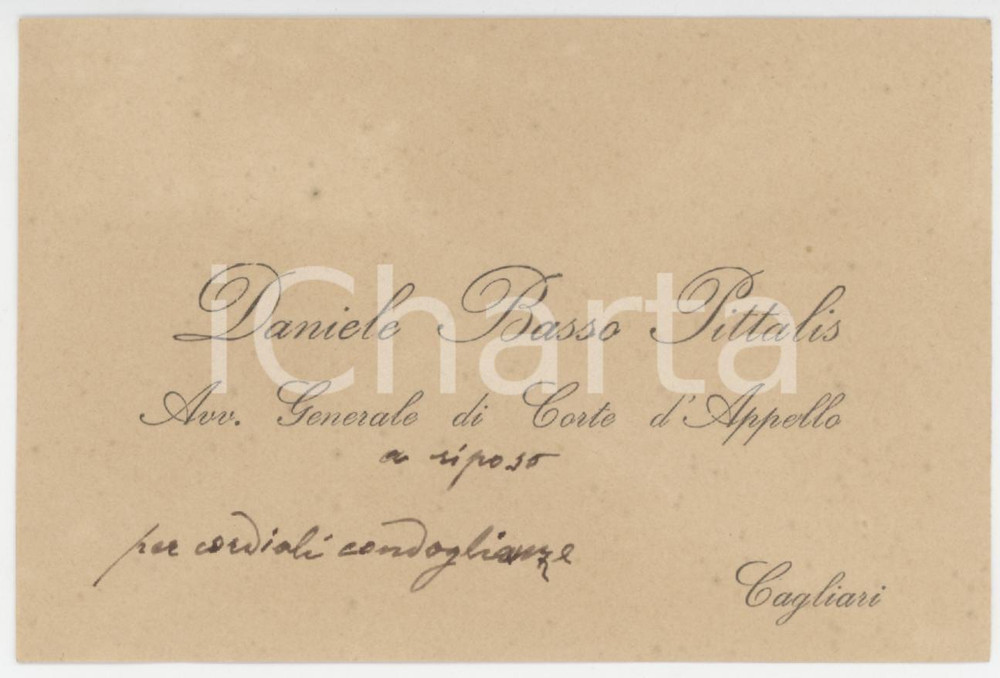 Daniele Basso Pittalis
Avv. Generale di Corte d'Appello
a riposo
per cordiali condoglianze
Cagliari
ICharta